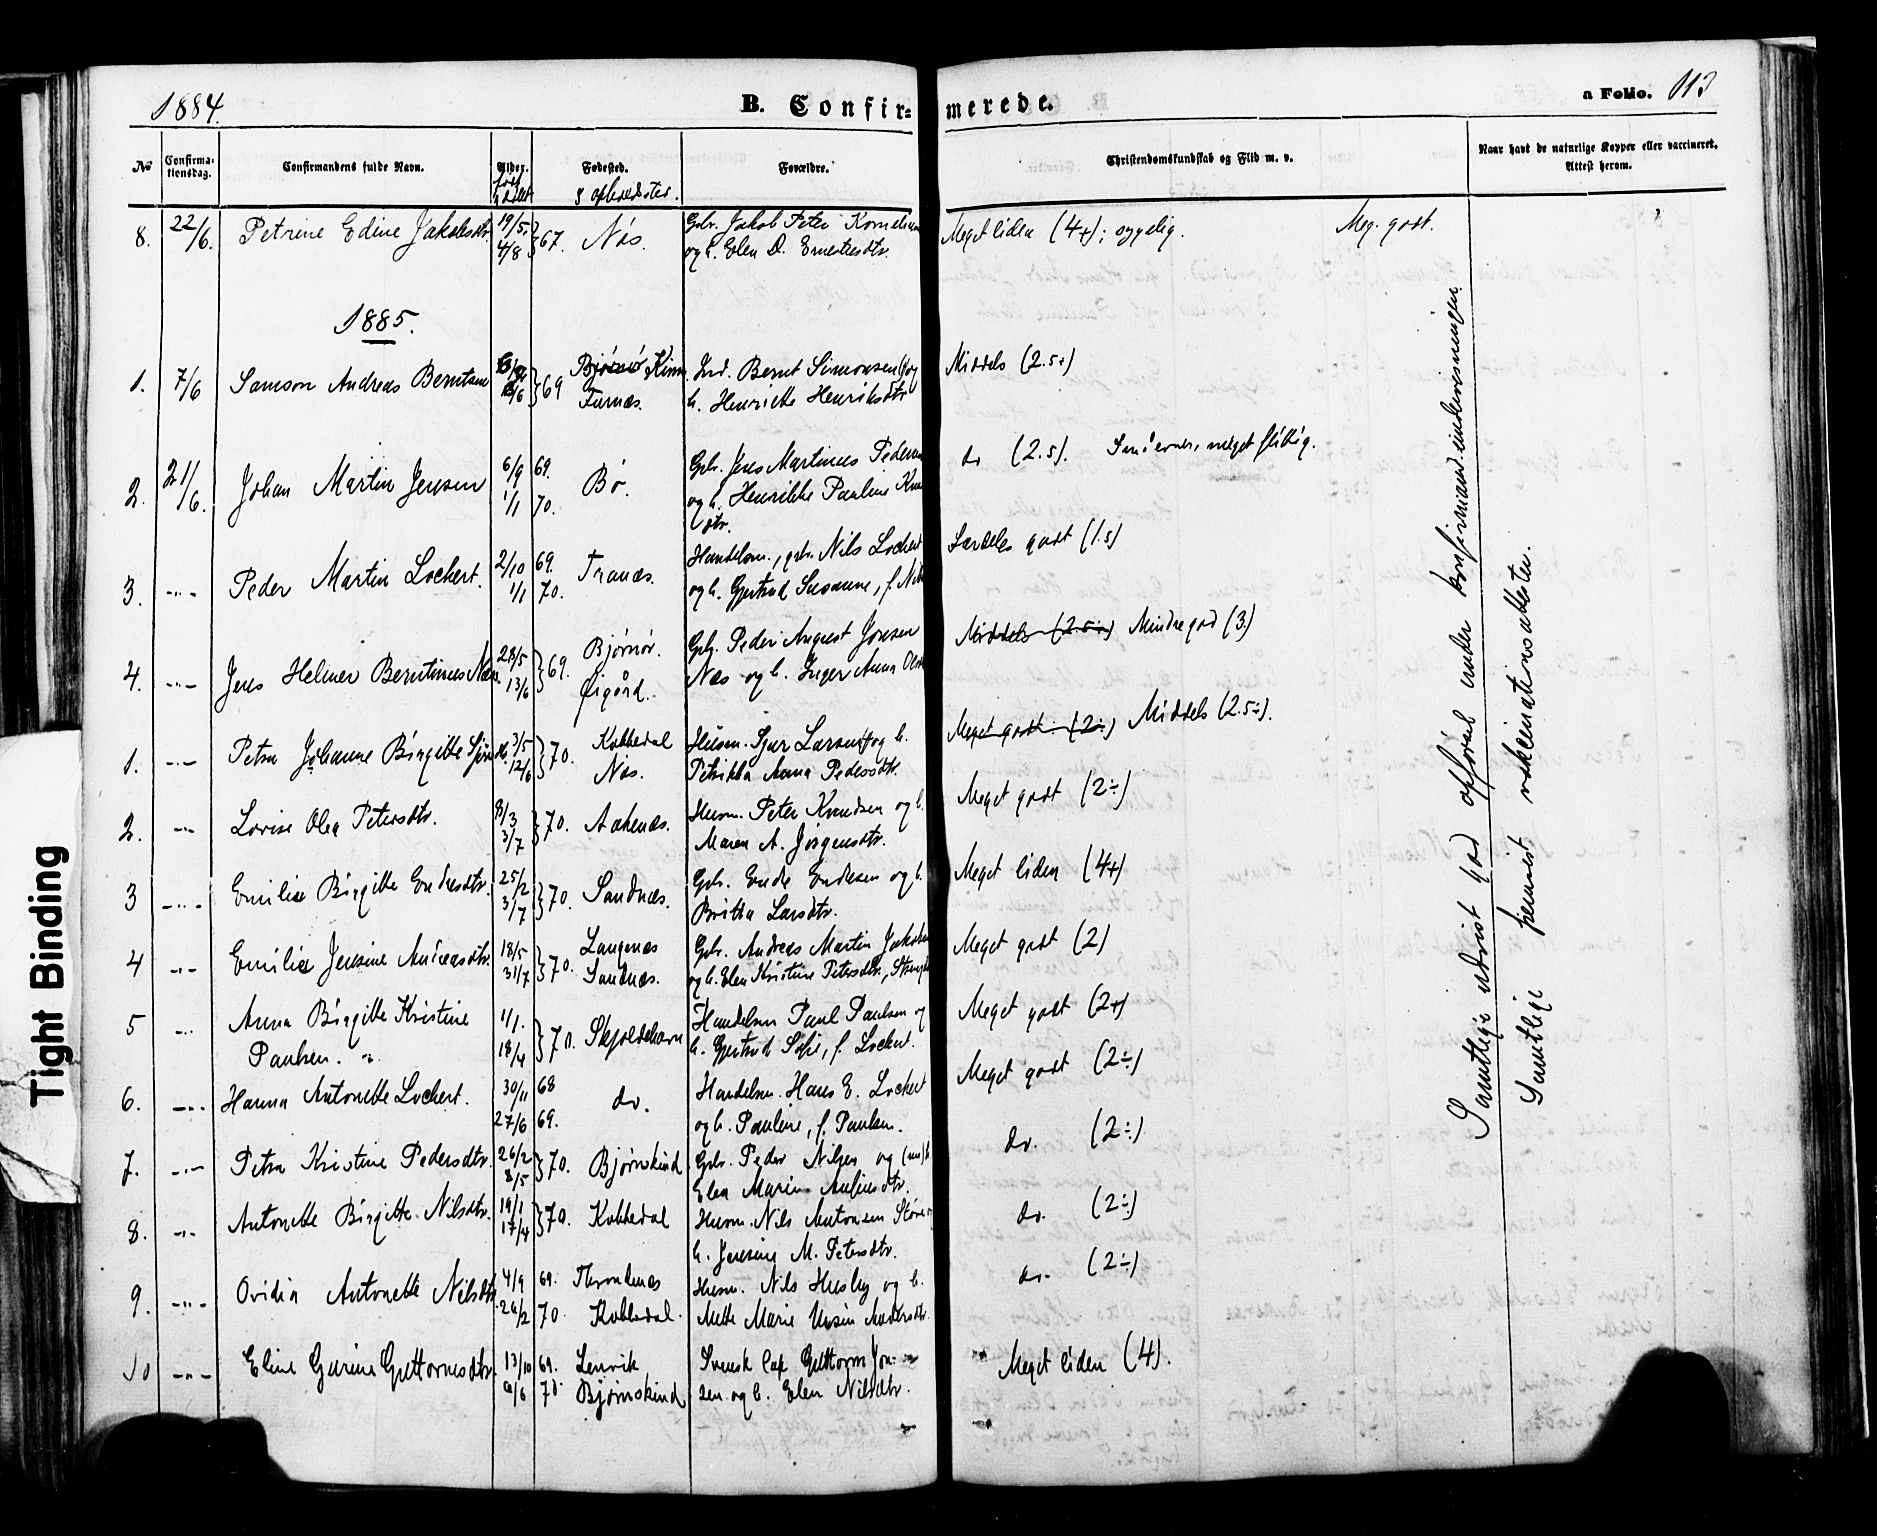 1884.
B. Confir-
merede.
a Folio. 113
No
Confirma-
tionsdag.
Confirmandens fulde Navn.
Alder.
født
& døbt
Fødested.
& opholdssted.
Forældre.
Christendomskundskab og Flid m. v.
Naar havt de naturlige Kopper eller vaccineret.
Attest herom.
8. 22/6. Petrine Edine Jakobsdtr. 19/5. 4/8 } 67. Nös. Gbr. Jakob Peter Kornelius
og h. Elen D. Ernestesdtr.
Meget liden (4+); sygelig. Meg. godt.
1885.
1. 7/6 Samson Andreas Berntsen 69 Bjørnør
Furnæs.
Ind. Bernt Simonsen og
h. Henriette Henriksdtr
Middels (2.5+)
2. 21/6. Johan Martin Jensen 6/9 69. 1/1 70. Bø. Gbr. Jens Martinus Pedersen
og h. Henrikke Pauline
dtr.
do (2.5). meget flittig.
3. -"- Peder Martin Lockert. 2/10 69. 1/1 70. Tranæs. Handelsm., gbr. Nils Lockert
og h. Gjertrud Susanne, f.
Særdeles godt (1.5)
4. -"- Jens Helmer Berntinus Næs 28/5 13/6 } 69. Bjørnør.
Øigård.
Gbr. Peder August Jonsen
Næs og h. Inger Anna
Middels (2.5÷) Mindre god (3)
1. -"- Petra Johanne Birgitte 3/5 12/6 } 70. Kobbedal
Nös.
Husm. Sjur Larsen og h.
Petrikka Anna Pedersdtr.
Meget godt (2÷) Middels (2.5÷).
2. -"- Lovise Olea Petersdtr. 8/3 3/7 } 70. Aakenæs. Husm. Peter Knudsen og h.
Maren A. Jörgensdtr.
Meget godt (2÷)
3 -"- Emilie Birgitte Endresdtr. 25/2 3/7 } 70. Sandnæs. Gbr. Ende Endresen og h.
Britha Larsdtr.
Meget liden (4+)
4 -"- Emilie Jensine Andreasdtr. 18/5 31/7 } 70. Langnæs
Sandnæs.
Gbr. Andreas Martin Jakobsen
og h. Elen Kristine Petersdtr.,
Meget godt (2)
5 -"- Anna Birgitte Kristine
Paulsen. 1/1. 18/4 } 70. Skjoldehavn Handelsm Paul Paulsen og
h. Gjertrud Sofie, f. Lockert.
Meget godt (2+)
6. -"- Hanna Antonette Lockert. 30/11 68 27/6 69. do. Handelsm. Hans E. Lockert
og h. Pauline, f. Paulsen.
Meget godt (2÷)
7. -"- Petra Kristine Pedersdtr. 26/2 8/5 } 70. Bjørnskind Gbr. Peder Nilsen og h.
Elen Marie
do. (2÷)
8. -"- Antonette Birgitte Nilsdtr. 19/1 17/4 } 70. Kobbedal Husm. Nils Antonsen
h. Jensine M. Petersdtr.
do. (2÷)
9. -"- Ovidia Antonette Nilsdtr 4/9 69. 26/2 70 Throndenæs
Kobbedal.
Husm. Nils Husby og h.
Mette Marie Andersdtr.
do. (2÷)
10 -"- Eline Gurine Guttormsdtr. 13/10 69. 6/6 70. Lenvik
Bjørnskind
Svensk Lap Guttorm Jon-
sen og h. Elen Nilsdtr.
Meget liden (4).
Samtlige udvist god opførsel under konfirmandundervisningen.
Samtlige fremvist vakcinationsattester.